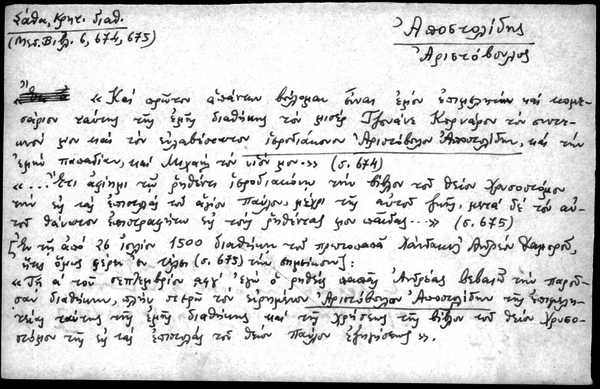 Σάθα, Κρητ. διαθ.
(Μεσ. Βιβλ. 6, 674, 675)
Ἀποστολίδης
Ἀριστόβουλος
« Καὶ πρῶτον ἁπάντων βούλομαι εἶναι ἐμὸν ἐπιμελητὴν καὶ κομε-
σάριον ταύτης τῆς ἐμῆς διαθήκης τὸν μισὲρ Τζουάνε Κορνάρον τὸν συντε-
κνόν μου καὶ τὸν εὐλαβέστατον ἱεροδιάκονον Ἀριστόβολον Ἀποστολίδην, καὶ τὴν
ἐμὴν παπαδίαν, καὶ Μιχαὴλ τὸν υἱόν μου.» (σ. 674)
«...Ἔτι ἀφίημι τῷ ῥηθέντι ἱεροδιακόνῳ τὴν βίβλον τοῦ θείου Χρυσοστόμου
τὴν εἰς τὰς ἐπιστολὰς τοῦ ἁγίου Παύλου, μέχρι τῆς αὐτοῦ ζωῆς, μετὰ δὲ τὸν αὐ-
τοῦ θάνατον ἐπιστραφήτω εἰς τοὺς ῥηθέντας μου παῖδας...» (σ. 675)
[Ἐν τῇ ἀπὸ 26 ἰουλίου 1500 διαθήκῃ τοῦ πρωτοπαπᾶ Χάνδακος Ἀνδρέου
ἥτις ὅμως φέρει ἐν τέλει (σ. 675) τὴν σημείωσιν]:
«Τῇ α΄ τοῦ σεπτεμβρίου ἐγὼ ὁ ῥηθεὶς παπᾶς Ἀνδρέας βεβαιῶ τὴν παροῦ-
σαν διαθήκην, πλὴν στερῶ τὸν εἰρημένον Ἀριστόβολον Ἀποστολίδην τῆς ἐπιμελη-
τείας ταύτης τῆς ἐμῆς διαθήκης καὶ τῆς χρήσεως τῆς βίβλου τοῦ θείου Χρυσο-
στόμου τῆς εἰς τὰς ἐπιστολὰς τοῦ θείου Παύλου ἐξηγήσεως».